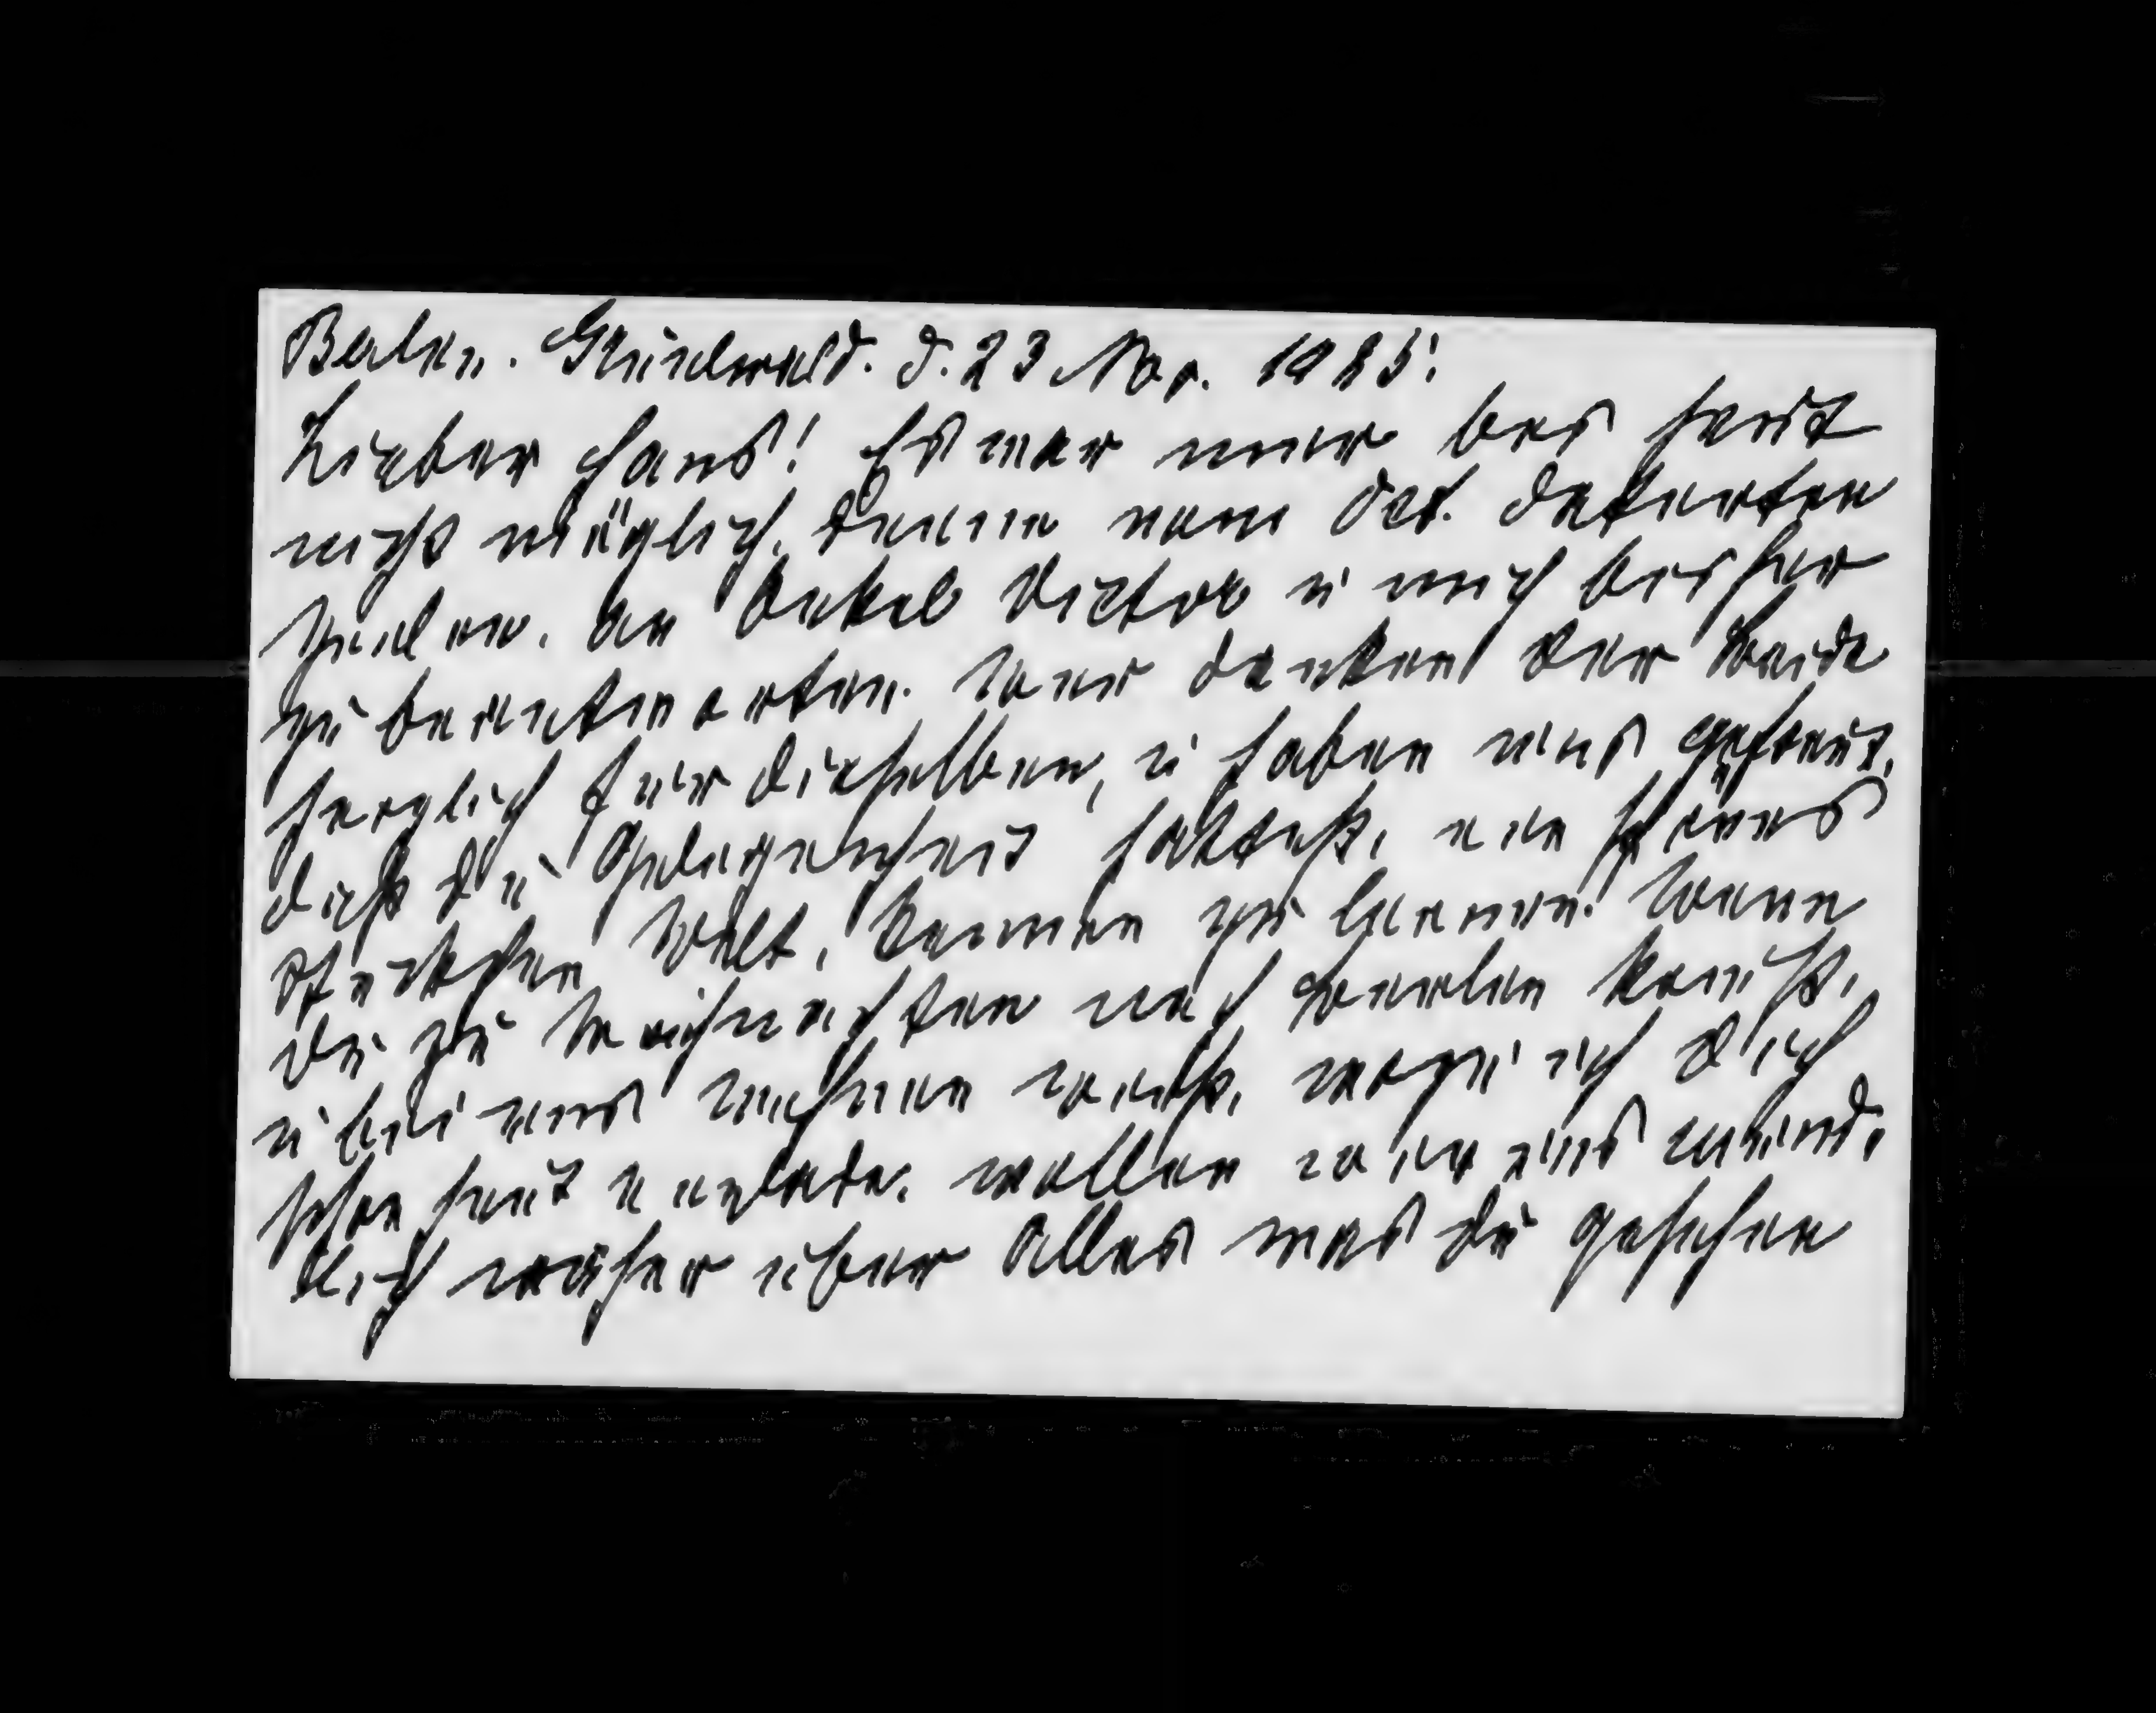 Berlin. Grunewald. d. 23 Nov. 1935.
Lieber Hans! Es war mir bis heut
nicht möglich, Deine vom Oct. datierten
Zeilen, an Onkel Victor u mich bisher
zu beantworten. Wir danken Dir Beide
herzlich für dieselben, u haben uns gefreut,
daß Du Gelegenheit hattest, ein schönes
Stückchen Welt, kennen zu lernen. Wenn
Du zu Weihnachten nach Berlin komst,
u bei uns wohnen wirst, wozu ich Dich
schon heut einlade, wollen wir uns münd-
lich näher über Alles was Du gesehen